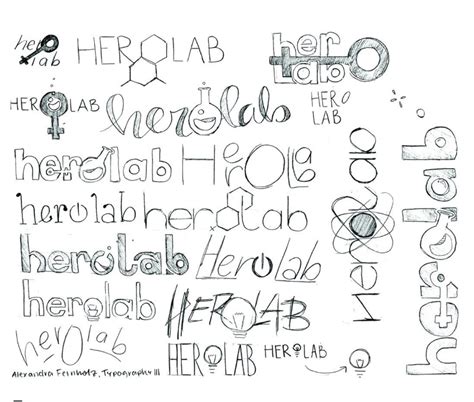 her
lab
HEROLAB
her
Lab
HEROLAB
herolab
HERO
LAB
herolab
HerOLa
herolab
herolab
herolab
herolab
herolab
HerOLab
herolab
HEROLAB
herolab
HEROLAB
HEROLAB
Alexandra Typography III